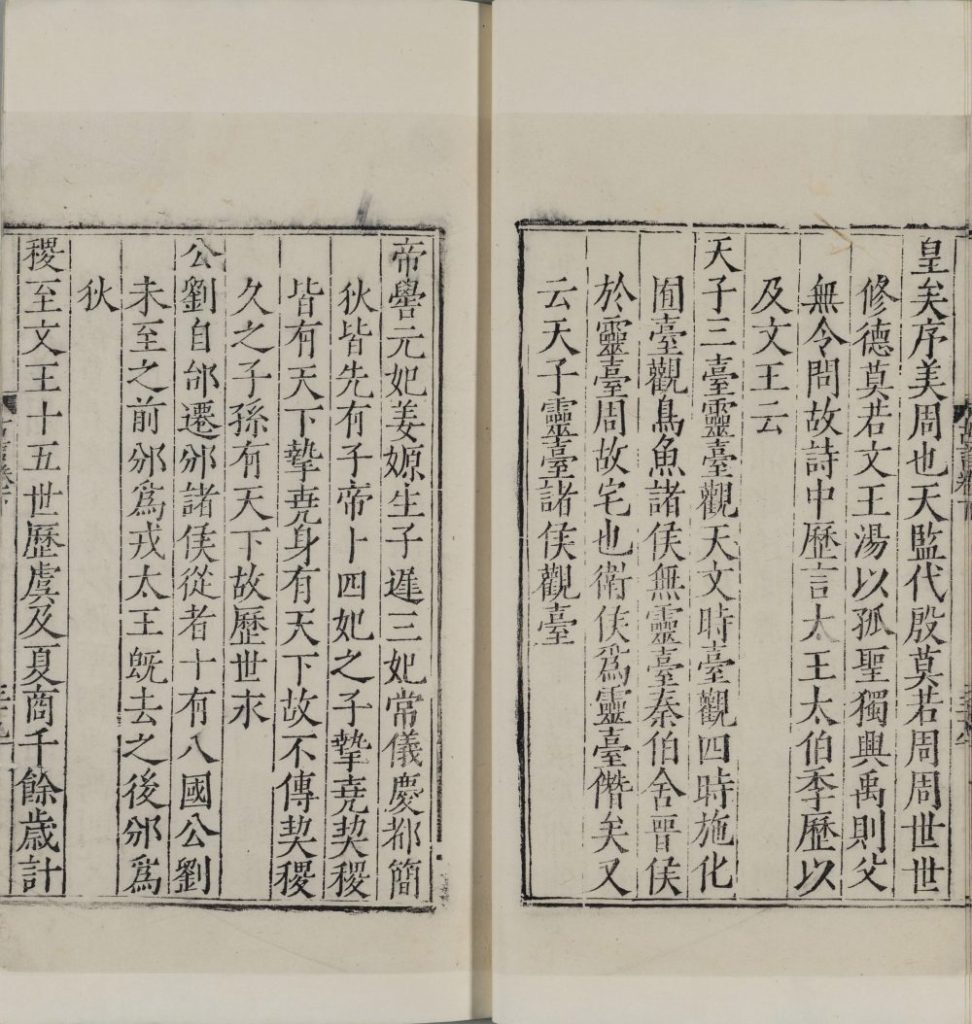 皇矣序美周也天監代殷莫若周周世世
修德莫若文王湯以孤聖獨興禹則父
無令問故詩中歷言太王太伯季歷以
及文王云
天子三臺靈臺觀天文時臺觀四時施化
囿臺觀鳥魚諸侯無靈臺秦伯舍晉侯
於靈臺周故宅也衛侯爲靈臺僭矣又
云天子靈臺諸侯觀臺
帝嚳元妃姜嫄生子遲三妃常儀慶都簡
狄皆先有子帝卜四妃之子摯堯契稷
皆有天下摯堯身有天下故不傳契稷
久之子孫有天下故歷世永
公劉自邰遷邠諸侯從者十有八國公劉
未至之前邠爲戎太王旣去之後邠爲
狄
稷至文王十五世歷虞及夏商千餘歲計